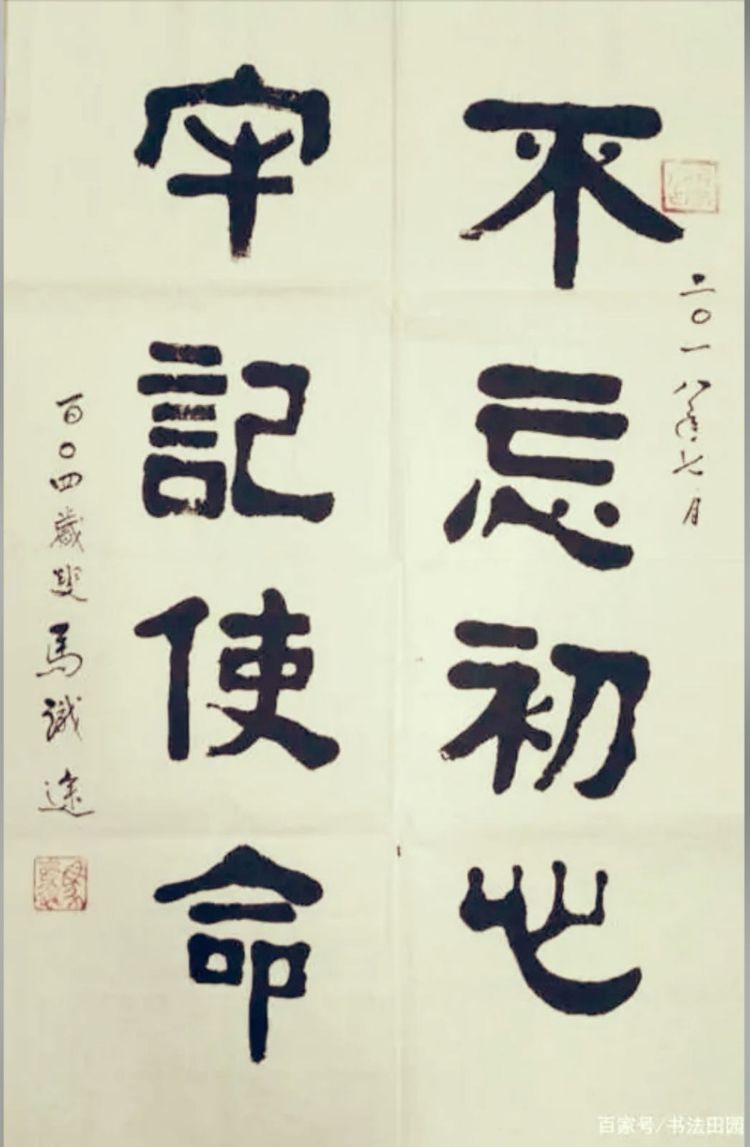 不忘初心
二〇一八年七月
牢記使命
百〇四歲叟馬識途
百家号/书法田园